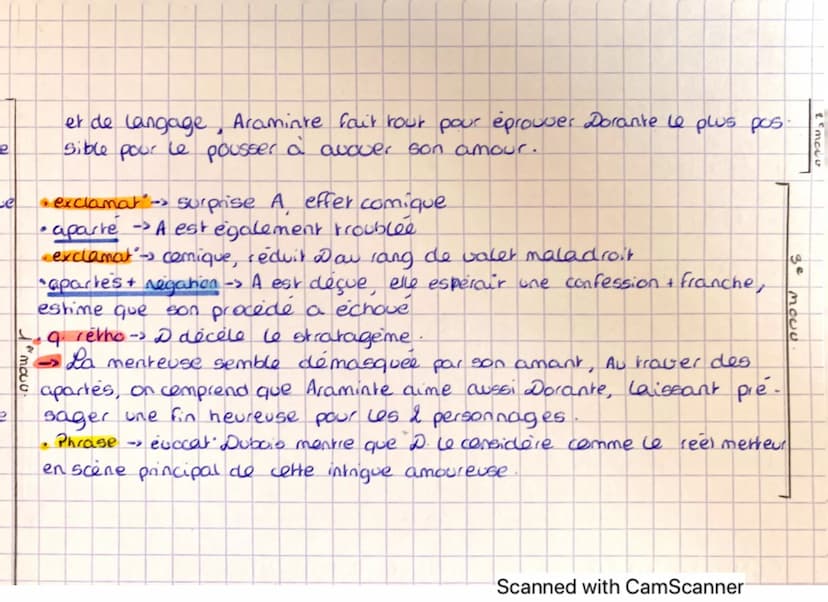 et de langage, Araminte fait tout pour éprouver Dorante le plus pos-
sible pour le pousser à avouer son amour.
2e mouv
• exclamat° -> surprise A, effet comique
• aparté -> A est également troublée
• exclamat° -> comique, réduit D au rang de valet maladroit
• apartés + négation -> A est déçue, elle espérait une confession + franche,
estime que son procédé a échoué
• q. rétho -> D décèle le stratagème.
-> La menteuse semble démasquée par son amant, Au traver des
apartés, on comprend que Araminte aime aussi Dorante, laissant pré-
sager une fin heureuse pour les 2 personnages.
• Phrase -> évocat° Dubois montre que D. le considère comme le réel metteur
en scène principal de cette intrigue amoureuse.
3e mouv.
1er mouv
Scanned with CamScanner